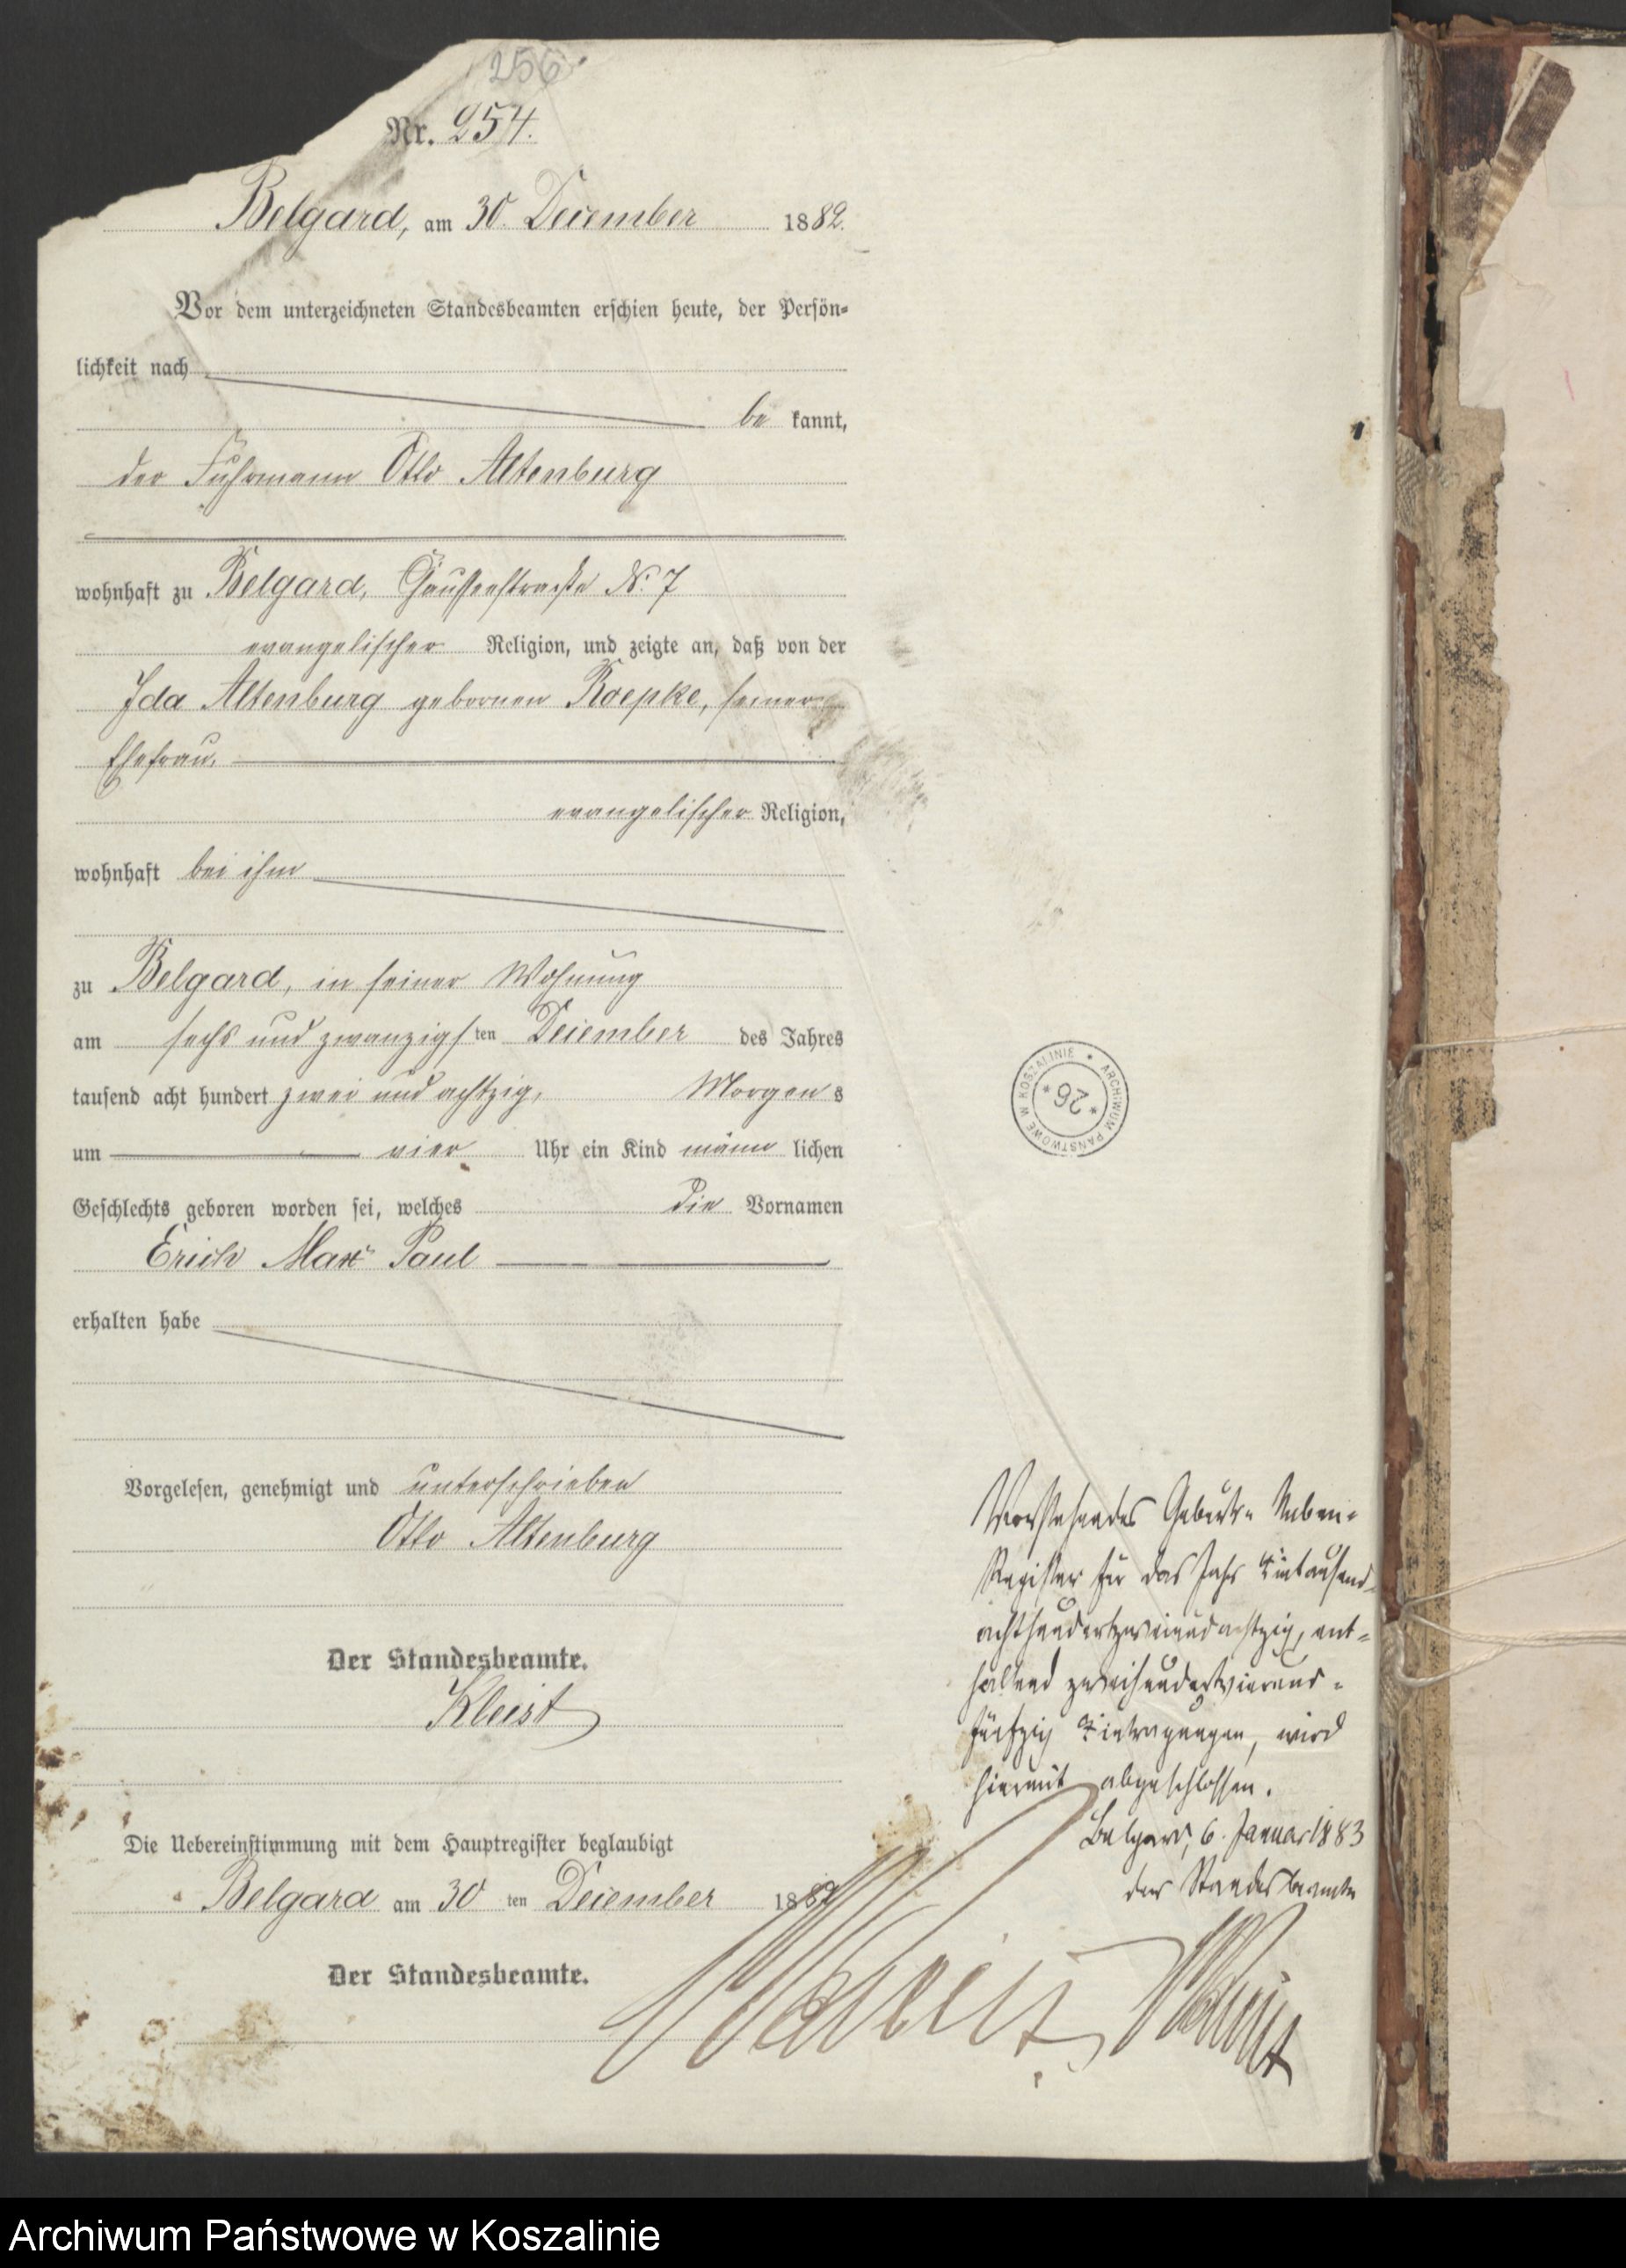 256
Nr. 254.
Belgard, am 30. December 1882.
Vor dem unterzeichneten Standesbeamten erschien heute, der Persön-
lichkeit nach
be kannt,
der Fuhrmann Otto Altenburg
wohnhaft zu Belgard, № 7
evangelischer Religion, und zeigte an, daß von der
Ida Altenburg gebornen Roepke, seiner
Ehefrau,
evangelischer Religion,
wohnhaft bei ihm
zu Belgard, in seiner Wohnung
am sechs und zwanzigsten December des Jahres
tausend acht hundert zwei und achtzig, Morgens
um vier Uhr ein Kind männlichen
Geschlechts geboren worden sei, welches die Vornamen
Erich Max Paul
erhalten habe
Vorgelesen, genehmigt und unterschrieben
Otto Altenburg
Der Standesbeamte.
Kleist
Die Uebereinstimmung mit dem Hauptregister beglaubigt
Belgard am 30 ten December 1882
Der Standesbeamte.
Kleist
Vorstehendes Geburts-Neben-
Register für das Jahr Eintausend-
achthundertzweiundachtzig, ent-
haltend zweihundertvierund-
fünfzig Eintragungen, wird
hiermit abgeschlossen.
Belgard, 6. Januar 1883
der Standesbeamte
Kleist
ARCHIWUM PAŃSTWOWE W KOSZALINIE
* 26 *
Archiwum Państwowe w Koszalinie